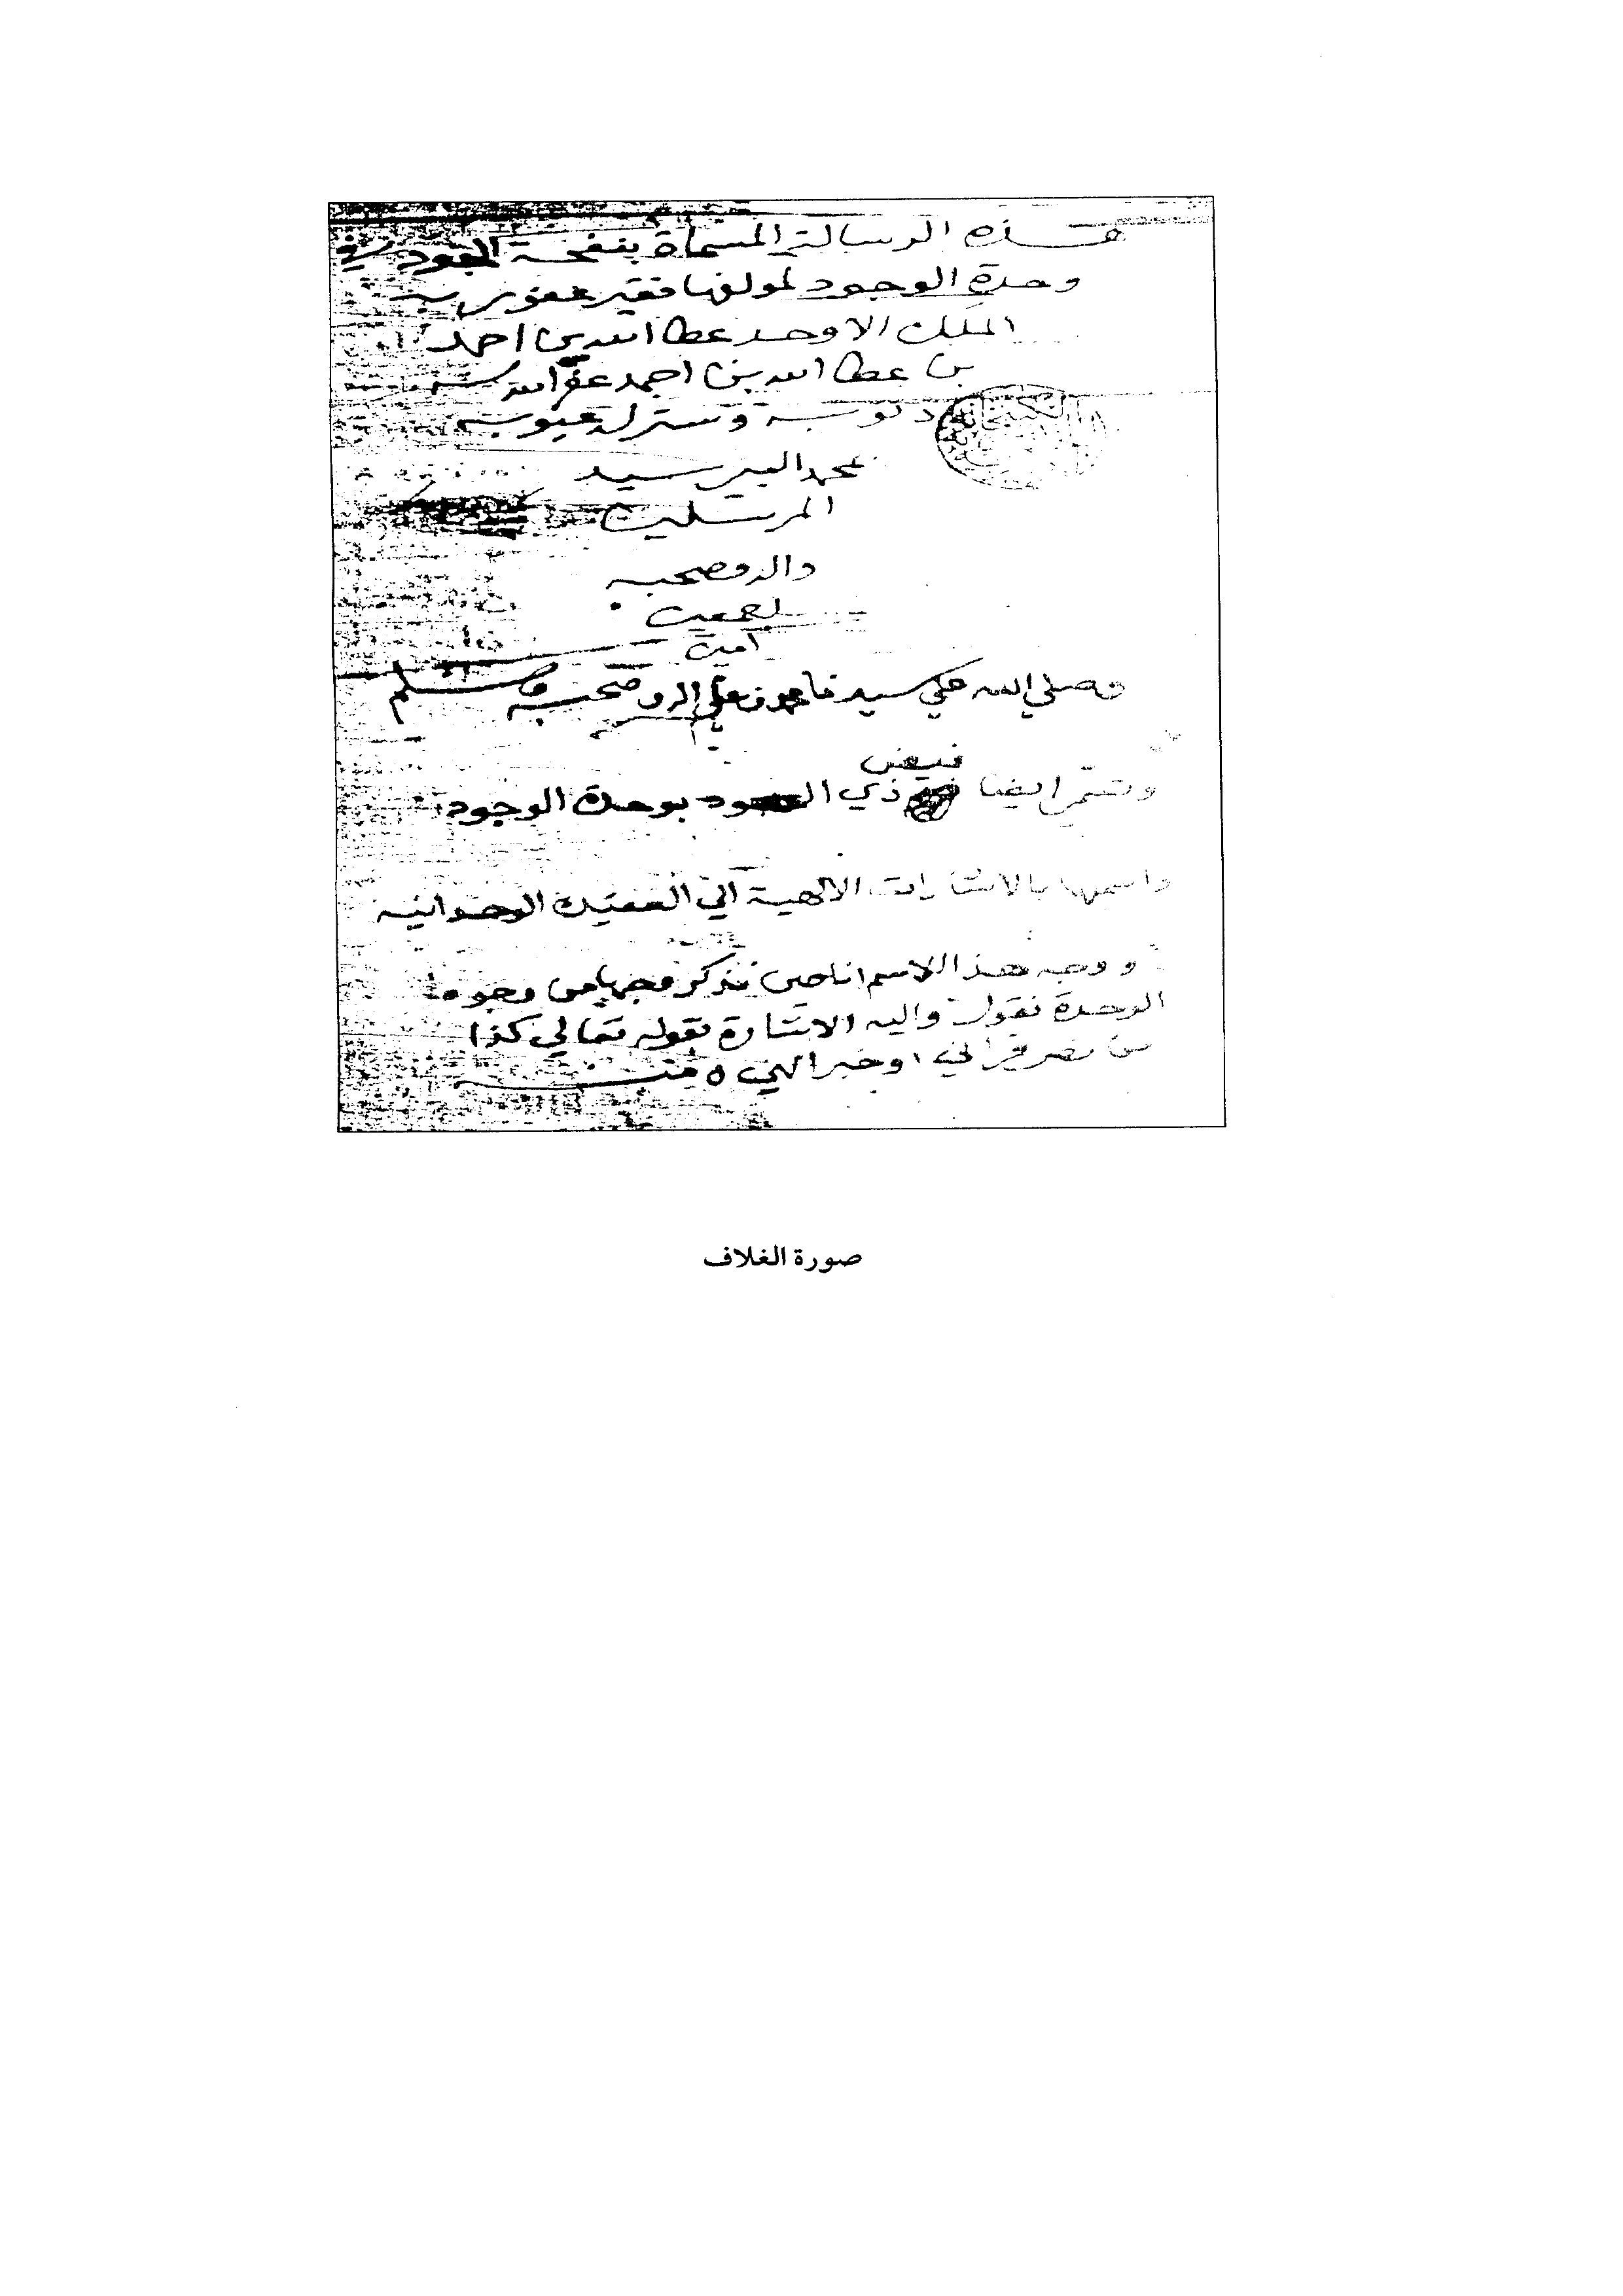 هذه الرسالة المسماة بنفحة الجود في
وحدة الوجود لمولفها فقير عفو ربه
الملك الاوحد عطا الله بن احمد
بن عطا الله بن احمد غفر الله
ذنوبه وستر له عيوبه
بمحمد سيد
المرسلين
واله وصحبه
اجمعين
امين
وصلي الله علي سيدنا محمد وعلي اله وصحبه وسلم
فيض
وتسمي ايضا ذي الجود بوحدة الوجود
واسمها بالاشارات الالهية الي الوحدانيه
ووجه هذا الاسم انا حين نذكر وجها من وجوه
الوحدة نقول واليه الاشارة بقوله تعالي كذا
من نص قراني او خبر الهي
صورة الغلاف